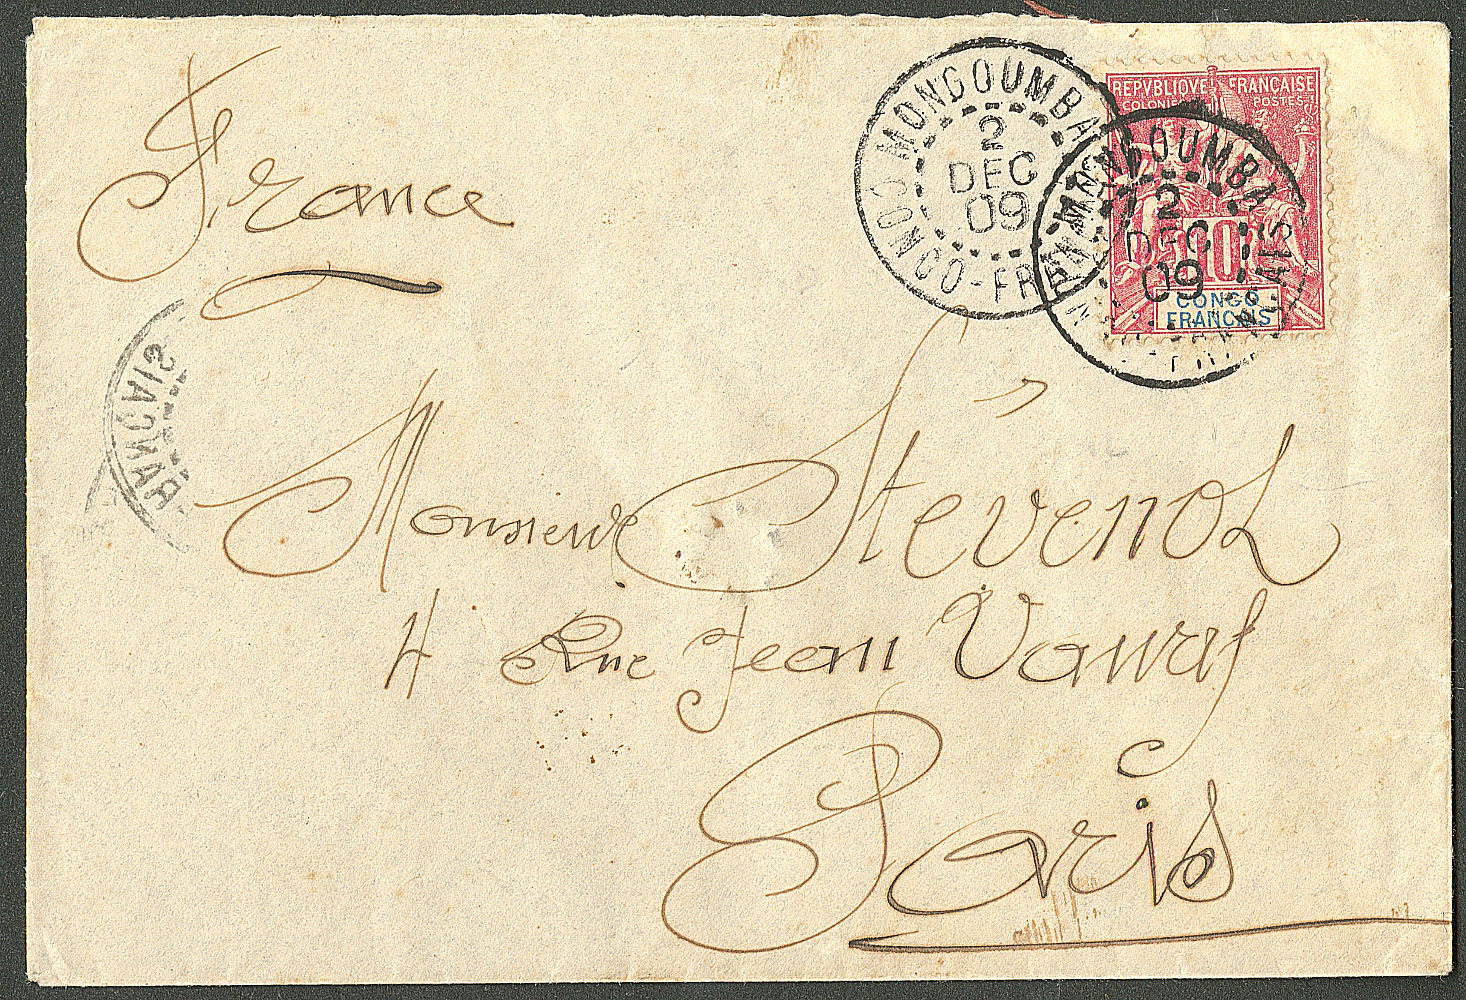 France
MONGOUMBA
2
DEC
09
CONGO-FR
REPVBLIQVE FRANÇAISE
COLONIES POSTES
MONGOUMBA
2
DEC
09
10
CONGO
FRANÇAIS
FRANÇAIS
Monsieur Stévenot
4 Rue Jean
Paris